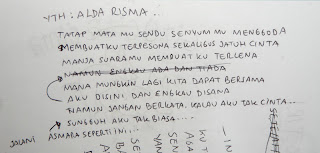 YTH : ALDA RISMA...
TATAP MATA MU SENDU SENYUM MU MENGGODA
MEMBUATKU TERPESONA SEKALIGUS JATUH CINTA
MANJA SUARAMU MEMBUAT KU TERLENA
NAMUN ENGKAU ADA DAN TIADA
MANA MUNGKIN LAGI KITA DAPAT BERSAMA
AKU DISINI DAN ENGKAU DISANA
NAMUN JANGAN BERKATA, KALAU AKU TAK CINTA...
SUNGGUH AKU TAK BIASA....
JALANI ASMARA SEPERTI INI...